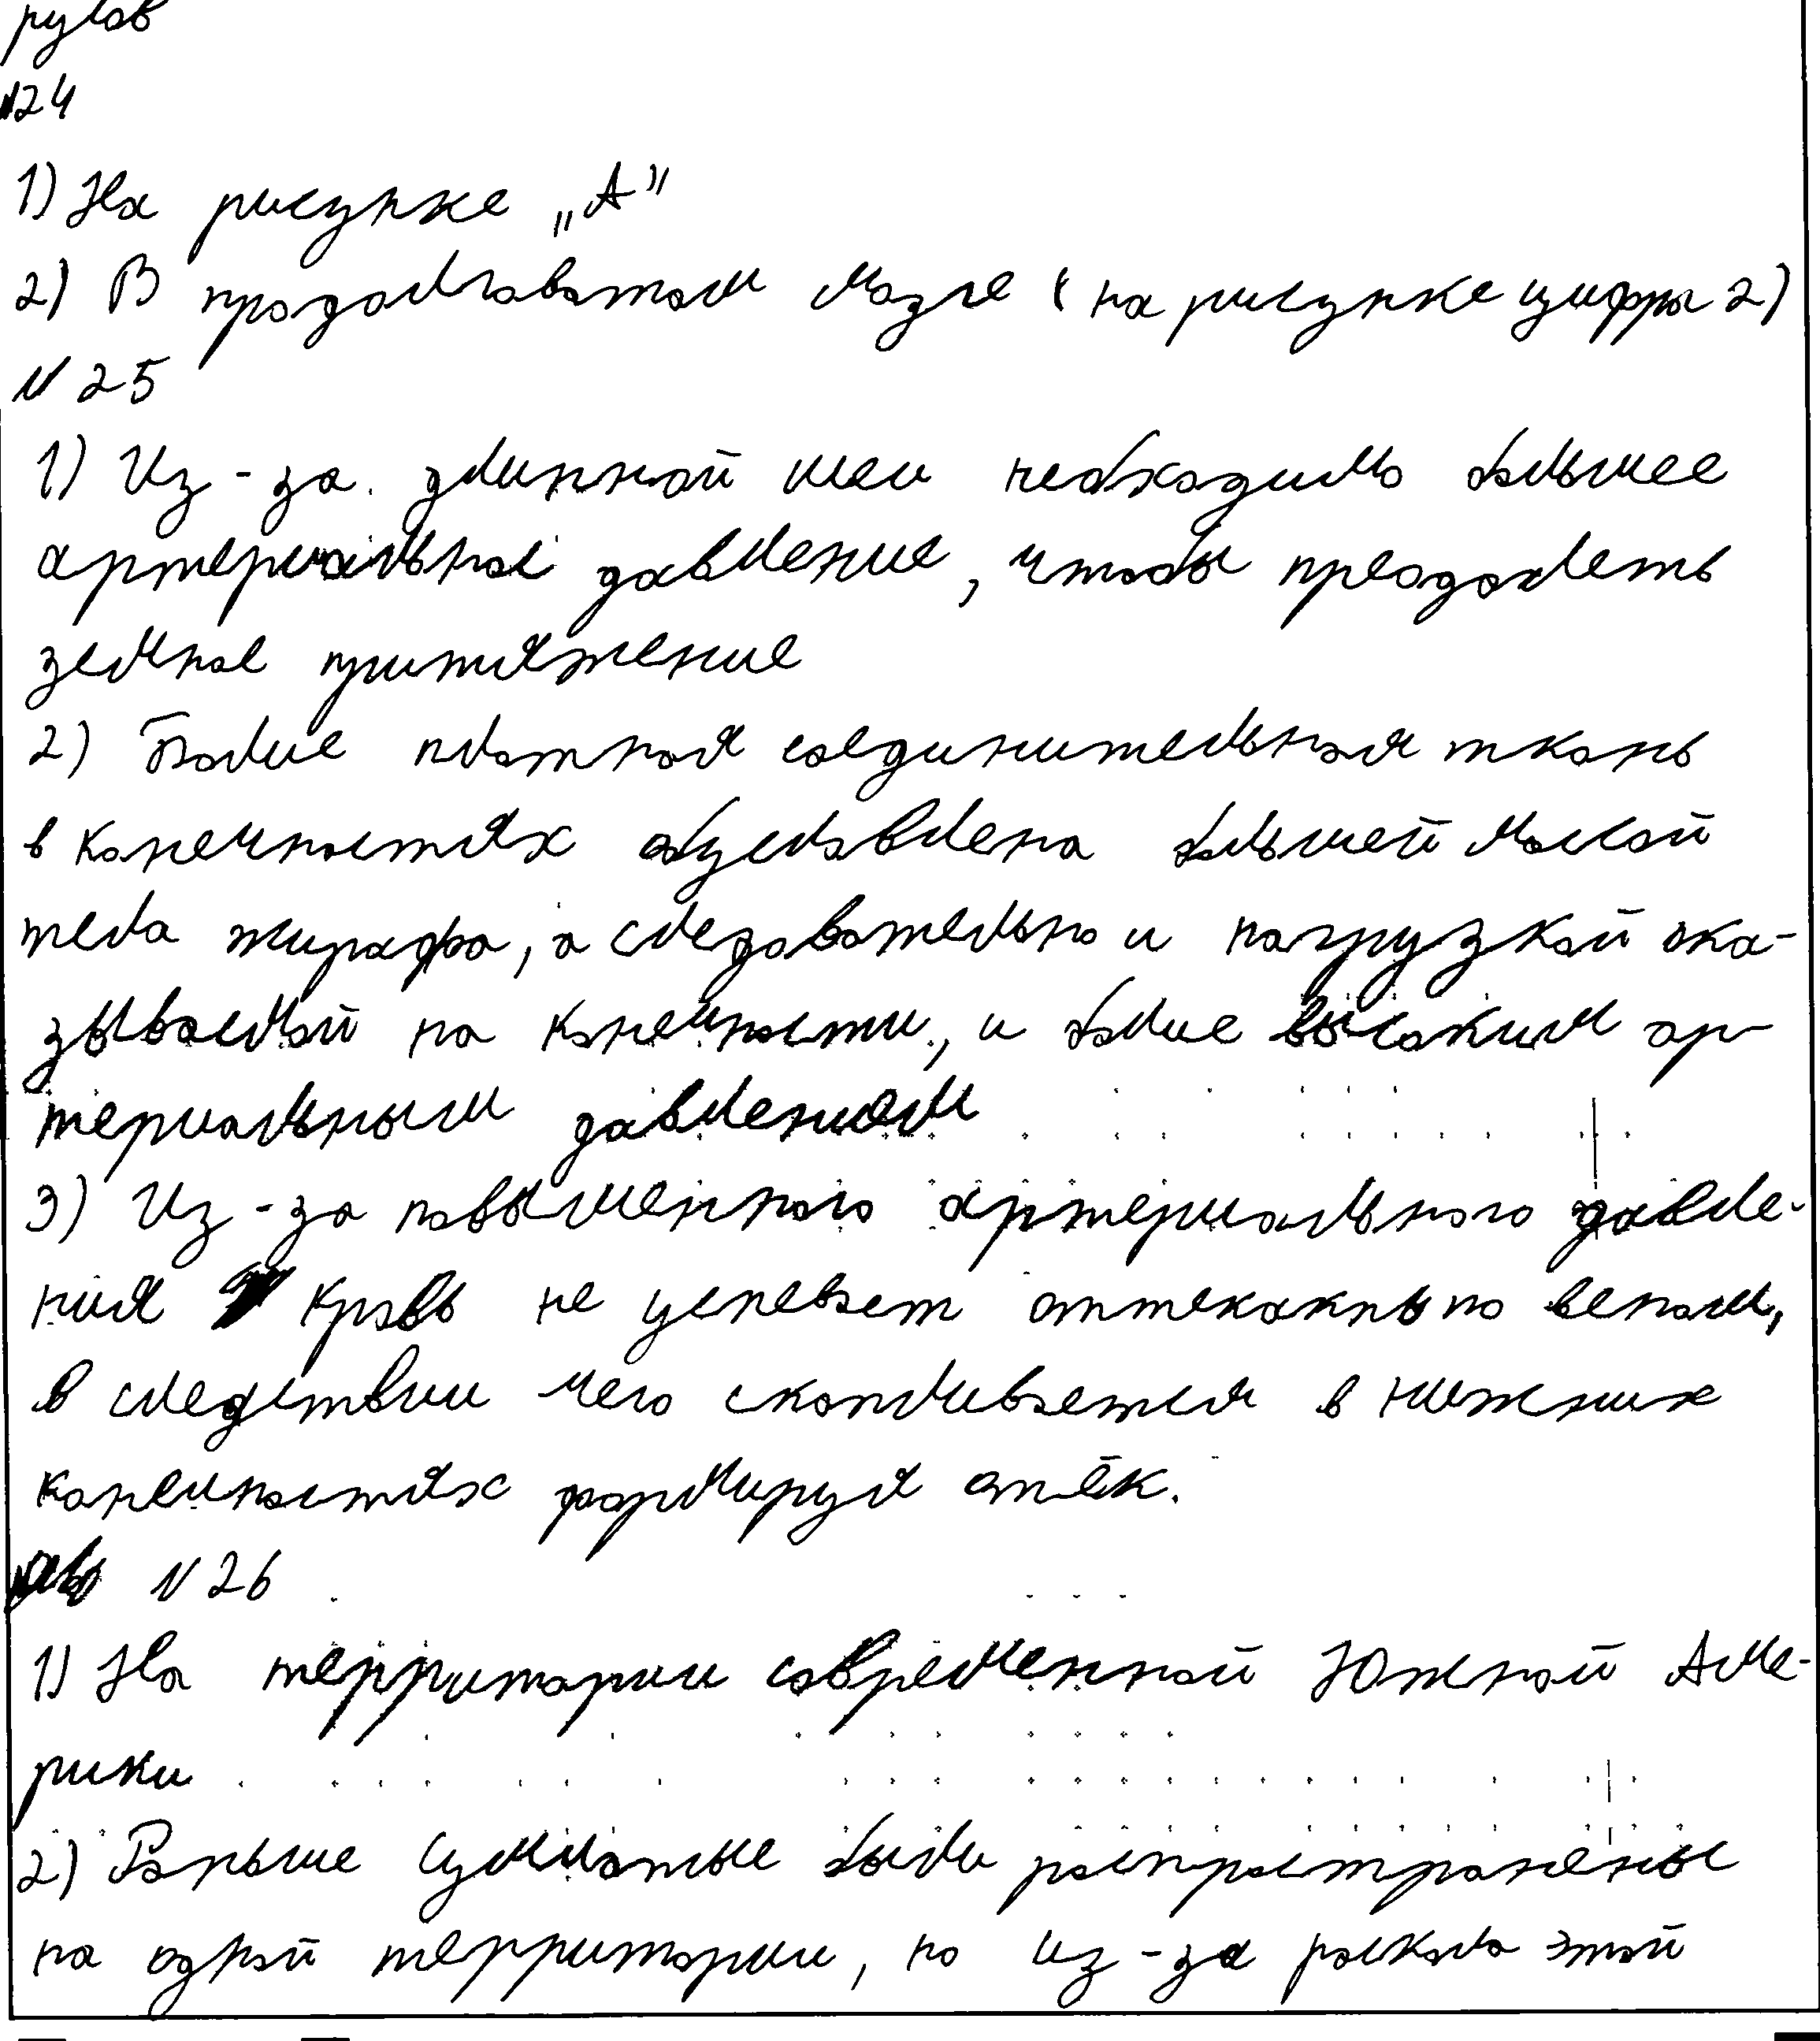 №24
1) На рисунке „А"
2) В продолговатом мозге (на рисунке цифры 2)
№ 25
1) Из-за длинной шеи необходимо большее
артериальное давление, чтобы преодолеть
земное притяжение
2) Более плотная соединительная ткань
в конечностях обусловлена большей массой
тела жирафа, а следовательно и нагрузкой ока-
зываемой на конечности, и более высоким ар-
териальным давлением
3) Из-за повышенного артериального давле-
ния кровь не успевает оттекать по венам,
в следствии чего скапливается в нижних
конечностях формируя отёк.
№ 26
1) На территории современной Южной Аме-
рики
2) Раньше сумчатые были распространены
на одной территории, но из-за раскола этой